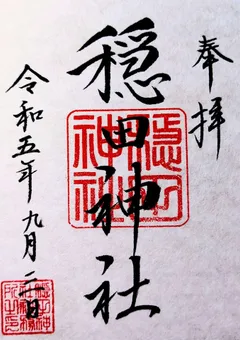 奉拝
穏田神社
穏田神社
令和五年九月二日